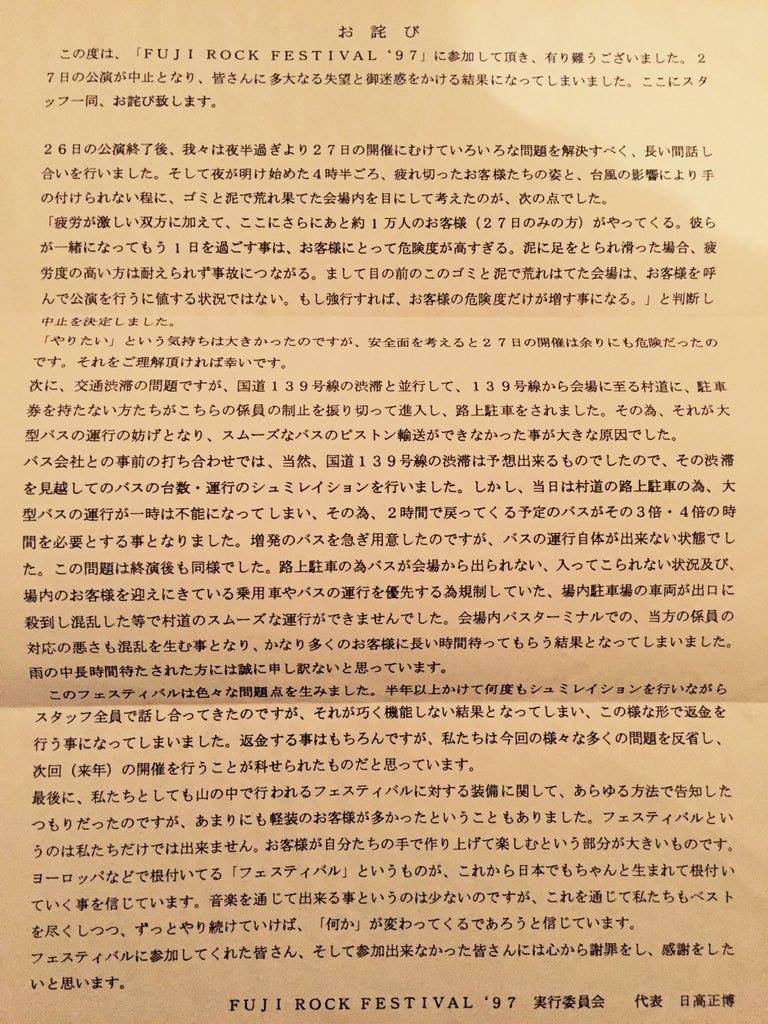 お詫び
この度は、「FUJI ROCK FESTIVAL '97」に参加して頂き、有り難うございました。2
7日の公演が中止となり、皆さんに多大なる失望と御迷惑をかける結果になってしまいました。ここにスタ
ッフ一同、お詫び致します。
26日の公演終了後、我々は夜半過ぎより27日の開催にむけていろいろな問題を解決すべく、長い間話し
合いを行いました。そして夜が明け始めた4時半ごろ、疲れ切ったお客様たちの姿と、台風の影響により手
の付けられない程に、ゴミと泥で荒れ果てた会場内を目にして考えたのが、次の点でした。
「疲労が激しい双方に加えて、ここにさらにあと約1万人のお客様(27日のみの方)がやってくる。彼ら
が一緒になってもう1日を過ごす事は、お客様にとって危険度が高すぎる。泥に足をとられ滑った場合、疲
労度の高い方は耐えられず事故につながる。まして目の前のこのゴミと泥で荒れはてた会場は、お客様を呼
んで公演を行うに値する状況ではない。もし強行すれば、お客様の危険度だけが増す事になる。」と判断し
中止を決定しました。
「やりたい」という気持ちは大きかったのですが、安全面を考えると27日の開催は余りにも危険だったの
です。それをご理解頂ければ幸いです。
次に、交通渋滞の問題ですが、国道139号線の渋滞と並行して、139号線から会場に至る村道に、駐車
券を持たない方たちがこちらの係員の制止を振り切って進入し、路上駐車をされました。その為、それが大
型バスの運行の妨げとなり、スムーズなバスのピストン輸送ができなかった事が大きな原因でした。
バス会社との事前の打ち合わせでは、当然、国道139号線の渋滞は予想出来るものでしたので、その渋滞
を見越してのバスの台数・運行のシュミレイションを行いました。しかし、当日は村道の路上駐車の為、大
型バスの運行が一時は不能になってしまい、その為、2時間で戻ってくる予定のバスがその3倍・4倍の時
間を必要とする事となりました。増発のバスを急ぎ用意したのですが、バスの運行自体が出来ない状態でし
た。この問題は終演後も同様でした。路上駐車の為バスが会場から出られない、入ってこられない状況及び、
場内のお客様を迎えにきている乗用車やバスの運行を優先する為規制していた、場内駐車場の車両が出口に
殺到し混乱した等で村道のスムーズな運行ができませんでした。会場内バスターミナルでの、当方の係員の
対応の悪さも混乱を生む事となり、かなり多くのお客様に長い時間待ってもらう結果となってしまいました。
雨の中長時間待たされた方には誠に申し訳ないと思っています。
このフェスティバルは色々な問題点を生みました。半年以上かけて何度もシュミレイションを行いながら
スタッフ全員で話し合ってきたのですが、それが巧く機能しない結果となってしまい、この様な形で返金を
行う事になってしまいました。返金する事はもちろんですが、私たちは今回の様々な多くの問題を反省し、
次回(来年)の開催を行うことが科せられたものだと思っています。
最後に、私たちとしても山の中で行われるフェスティバルに対する装備に関して、あらゆる方法で告知した
つもりだったのですが、あまりにも軽装のお客様が多かったということもありました。フェスティバルとい
うのは私たちだけでは出来ません。お客様が自分たちの手で作り上げて楽しむという部分が大きいものです。
ヨーロッパなどで根付いてる「フェスティバル」というものが、これから日本でもちゃんと生まれて根付い
ていく事を信じています。音楽を通じて出来る事というのは少ないのですが、これを通じて私たちもベスト
を尽くしつつ、ずっとやり続けていけば、「何か」が変わってくるであろうと信じています。
フェスティバルに参加してくれた皆さん、そして参加出来なかった皆さんには心から謝罪をし、感謝をした
いと思います。
FUJI ROCK FESTIVAL '97 実行委員会 代表 日高正博